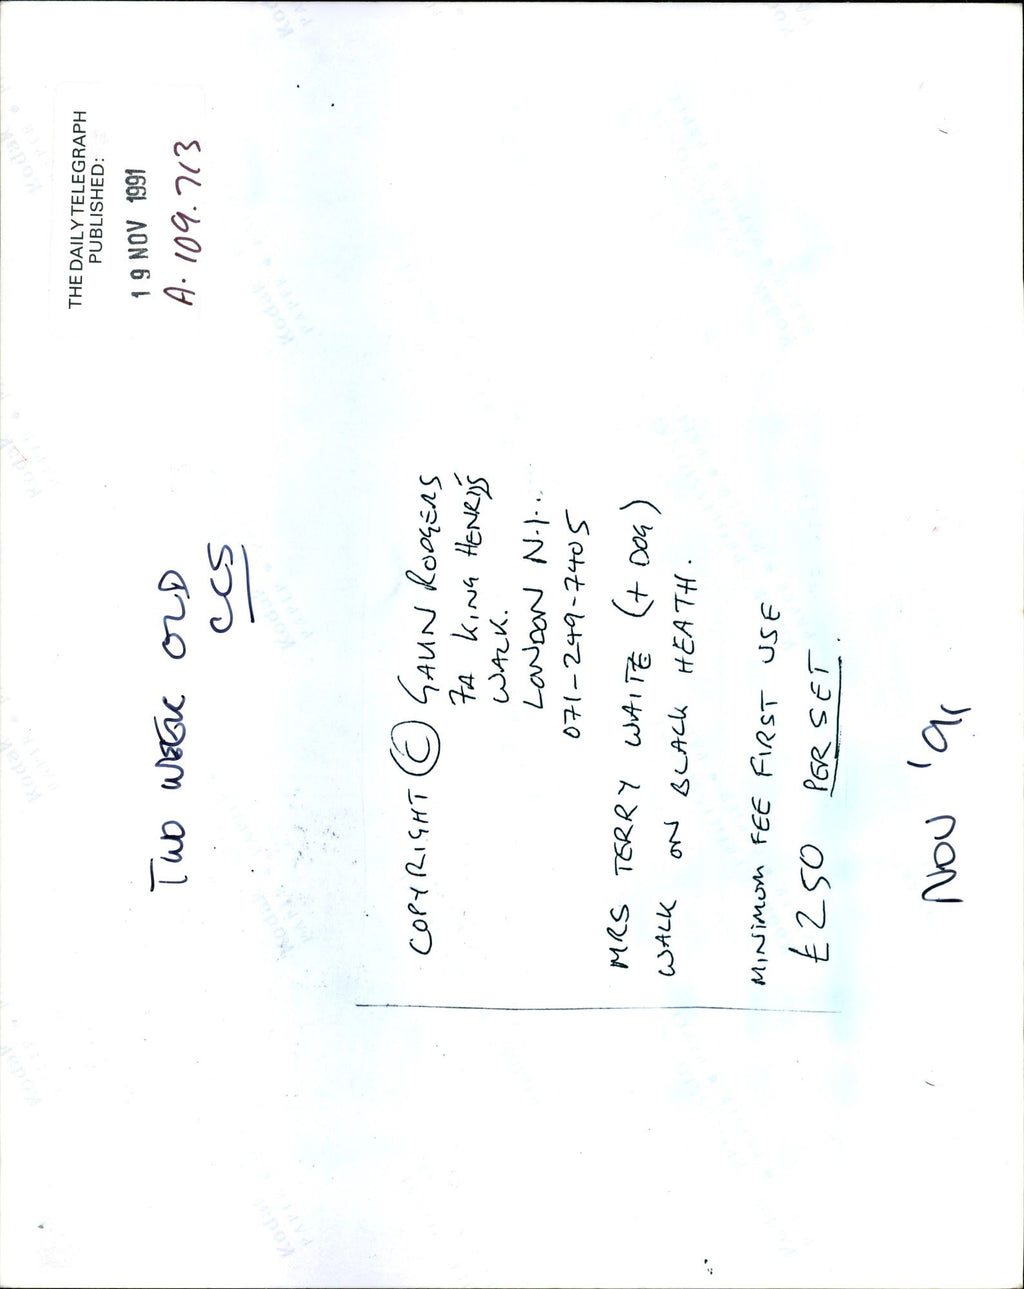 THE DAILY TELEGRAPH
PUBLISHED:
19 NOV 1991
A.109.713
TWO WEEK OLD
CCS
COPYRIGHT (C) GAVIN RODGERS
7A KING HENRYS
WALK.
LONDON N.1..
071-249-7405
MRS TERRY WAITE (+ DOG)
WALK ON BLACK HEATH.
MINIMUM FEE FIRST USE
£250 PER SET.
NOV '91
Kodak
PAPER